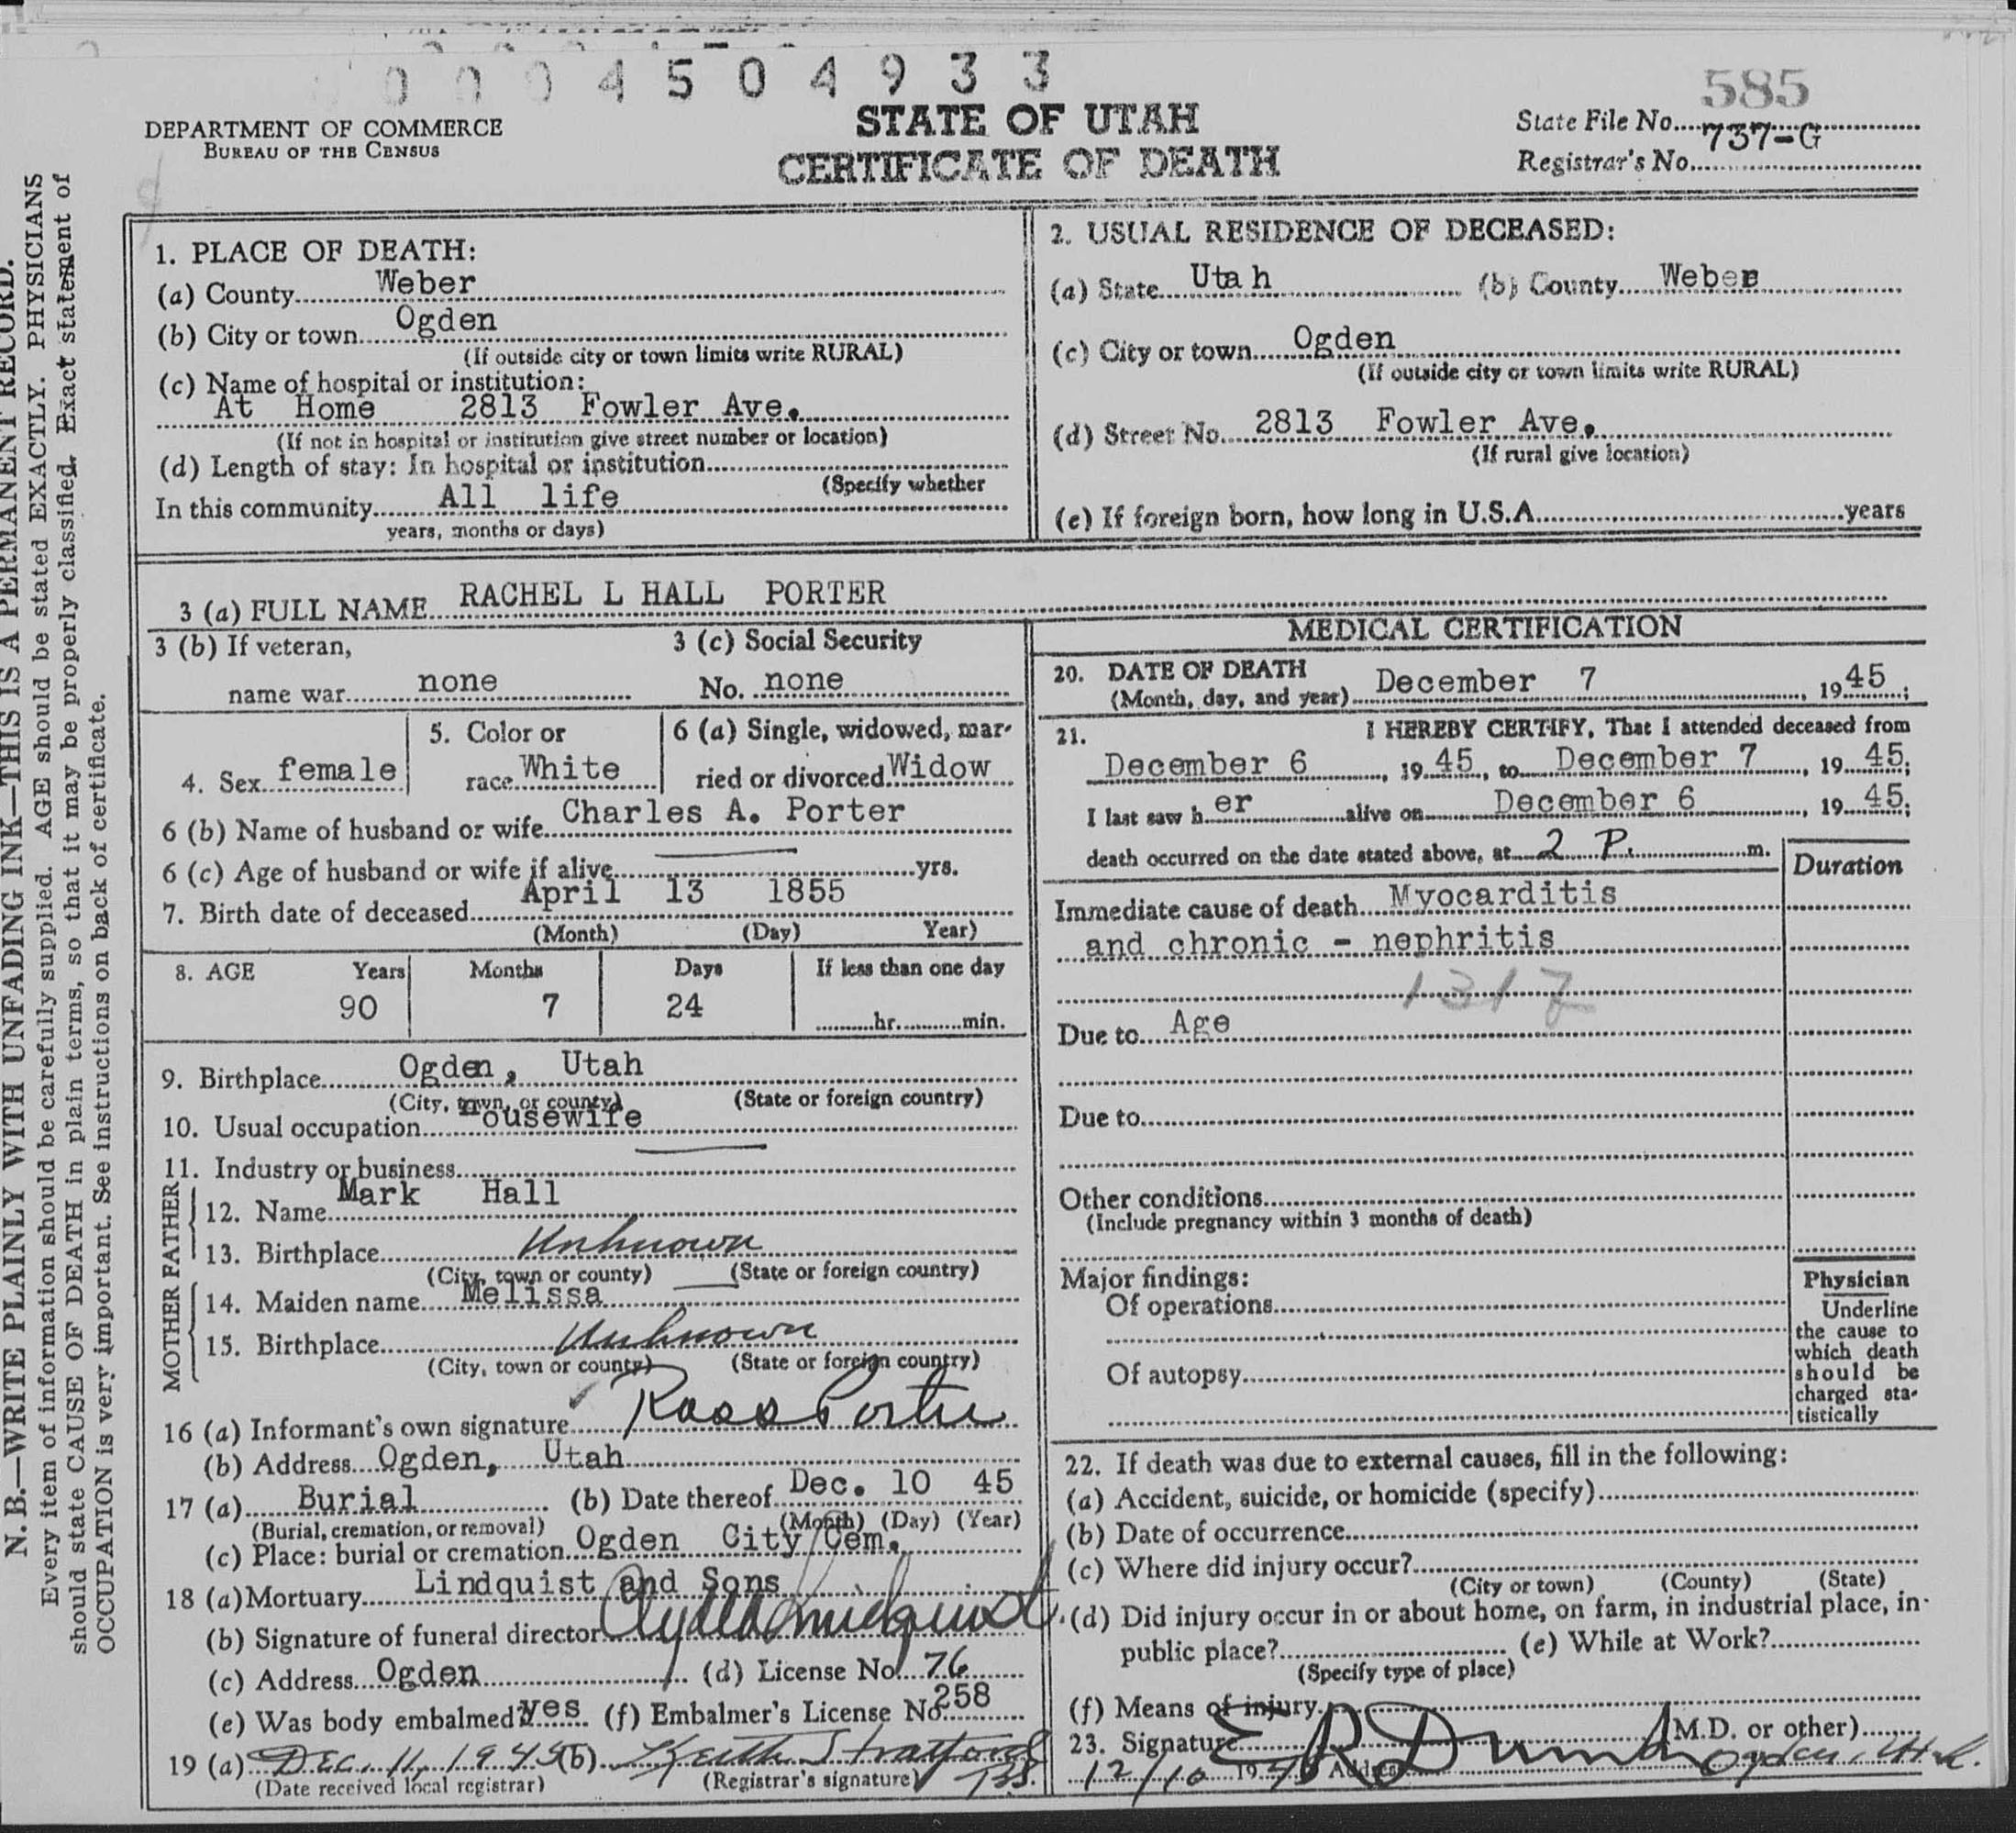 0004504933
585
DEPARTMENT OF COMMERCE
BUREAU OF THE CENSUS
STATE OF UTAH
CERTIFICATE OF DEATH
State File No.
737-G
Registrar's No.
N. B.—WRITE PLAINLY WITH UNFADING INK—THIS IS A PERMANENT RECORD.
Every item of information should be carefully supplied. AGE should be stated EXACTLY. PHYSICIANS
should state CAUSE OF DEATH in plain terms, so that it may be properly classified. Exact statement of
OCCUPATION is very important. See instructions on back of certificate.
1. PLACE OF DEATH:
(a) County Weber
(b) City or town Ogden
(If outside city or town limits write RURAL)
(c) Name of hospital or institution:
At Home 2813 Fowler Ave.
(If not in hospital or institution give street number or location)
(d) Length of stay: In hospital or institution
(Specify whether
In this community All life
years, months or days)
2. USUAL RESIDENCE OF DECEASED:
(a) State Utah (b) County Weber
(c) City or town Ogden
(If outside city or town limits write RURAL)
(d) Street No. 2813 Fowler Ave.
(If rural give location)
(e) If foreign born, how long in U.S.A. years
3 (a) FULL NAME RACHEL L HALL PORTER
3 (b) If veteran, 3 (c) Social Security
name war none No. none
4. Sex female 5. Color or race White 6 (a) Single, widowed, married or divorced Widow
6 (b) Name of husband or wife Charles A. Porter
6 (c) Age of husband or wife if alive yrs.
7. Birth date of deceased April 13 1855
(Month) (Day) Year)
8. AGE Years Months Days If less than one day
90 7 24 hr. min.
9. Birthplace Ogden, Utah
(City, town, or county) (State or foreign country)
10. Usual occupation Housewife
11. Industry or business
FATHER
12. Name Mark Hall
13. Birthplace Unknown
(City, town or county) (State or foreign country)
MOTHER
14. Maiden name Melissa
15. Birthplace Unknown
(City, town or county) (State or foreign country)
16 (a) Informant's own signature Ross Porter
(b) Address Ogden, Utah
17 (a) Burial (b) Date thereof Dec. 10 45
(Burial, cremation, or removal) (Month) (Day) (Year)
(c) Place: burial or cremation Ogden City Cem.
18 (a) Mortuary Lindquist and Sons
(b) Signature of funeral director Clyde Lindquist
(c) Address Ogden (d) License No. 76
(e) Was body embalmed? yes (f) Embalmer's License No. 258
19 (a) DEC. 11, 1945 (b) Keith Stratford
(Date received local registrar) (Registrar's signature)
MEDICAL CERTIFICATION
20. DATE OF DEATH
(Month, day, and year) December 7, 1945;
21. I HEREBY CERTIFY, That I attended deceased from
December 6, 1945, to December 7, 1945;
I last saw her alive on December 6, 1945;
death occurred on the date stated above, at 2 P. m.
Duration
Immediate cause of death Myocarditis
and chronic - nephritis
Due to Age
Due to
Other conditions
(Include pregnancy within 3 months of death)
Major findings:
Of operations
Of autopsy
Physician
Underline
the cause to
which death
should be
charged sta-
tistically
22. If death was due to external causes, fill in the following:
(a) Accident, suicide, or homicide (specify)
(b) Date of occurrence
(c) Where did injury occur?
(City or town) (County) (State)
(d) Did injury occur in or about home, on farm, in industrial place, in
public place? (e) While at Work?
(Specify type of place)
(f) Means of injury
23. Signature (M.D. or other)
12/10 1945 Address Ogden, Utah.